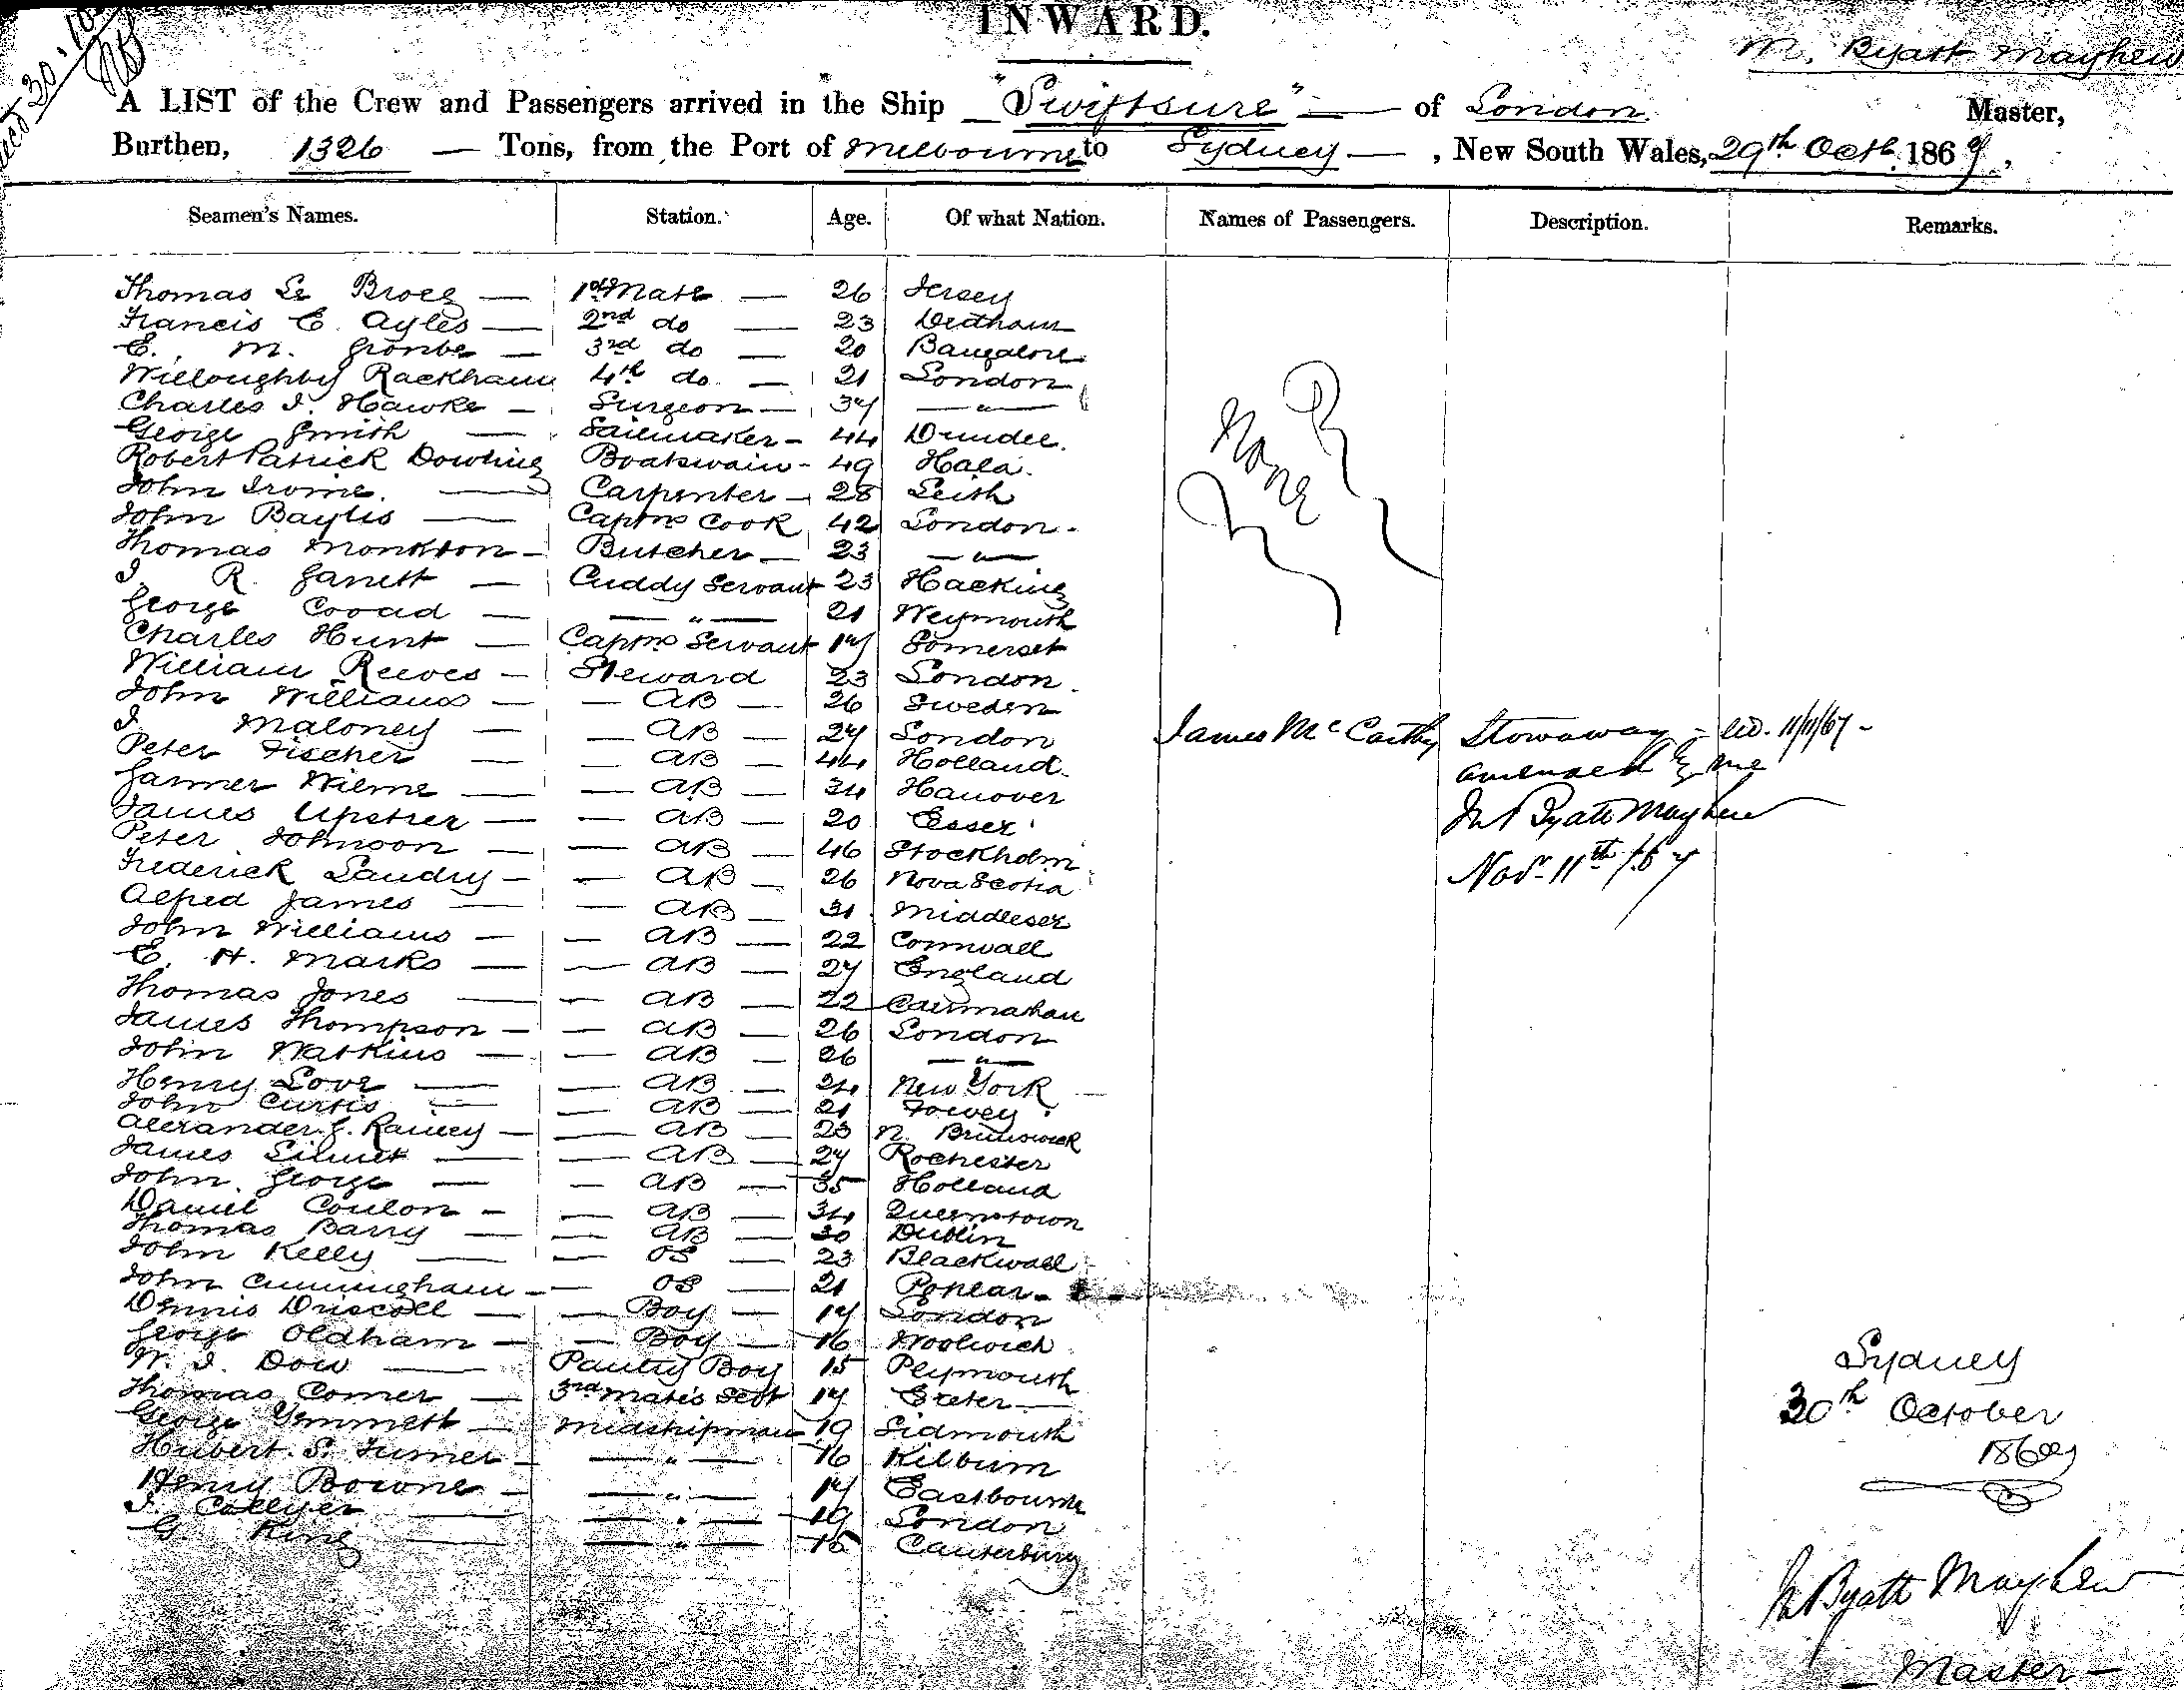 INWARD.
M. Byatt Mayhew
A LIST of the Crew and Passengers arrived in the Ship "Swiftsure" — of London Master,
Burthen, 1326 — Tons, from the Port of Melbourne to Sydney — , New South Wales, 29th Octr. 1867,
Seamen's Names. Station. Age. Of what Nation. Names of Passengers. Description. Remarks.
Thomas Le Brocq — 1st Mate — 26 Jersey
Francis E. Ayles — 2nd do — 23 Dedham
E. M. — 3rd do — 20 Bangalore
Willoughby Rackham 4th do — 21 London
Charles J. Hawke — Surgeon — 37 — " —
George Smith — Sailmaker — 44 Dundee.
Robert Patrick Dowling Boatswain - 49
John Irvine. — Carpenter — 28 Leith
John Baylis — Captns Cook 42 London -
None
Thomas Monkton — Butcher — 23 — " —
J. R. Garrett — Cuddy Servant 23 Hacking
George — — " — 21 Weymouth
Charles Hunt — Captns Servant 17 Somerset
William Reeves — Steward 23 London
John Williams — — AB — 26 Sweden
J. Maloney — — AB — 27 London James McCarthy Stowaway - 11/11/67 -
Peter Fischer — — AB — 44 Holland
amended by me
Wilme — — AB — 34 Hanover
James Upsher — — AB — 20 Essex
M Byatt Mayhew
Peter Johnson — — AB — 46 Stockholm
Novr 11th /67
Frederick Landry — — AB — 26 Nova Scotia
Alfred James — — AB — 31 Middlesex
John Williams — — AB — 22 Cornwall
E. H. Marks — — AB — 27 England
Thomas Jones — — AB — 22
James Thompson — — AB — 26 London
John Watkins — — AB — 26 — " —
Henry Love — — AB — 24 New York
John Curtis — — AB — 21 Fowey
Alexander G. Rainey — — AB — 23 N. Brunswick
James — — AB — 27 Rochester
John George — — AB — 35 Holland
Daniel Coulon — — AB — 34 Queenstown
Thomas Barry — — AB — 30 Dublin
John Kelly — — OS — 23 Blackwall
John Cunningham — — OS — 21 Poplar
Dennis Driscoll — — Boy — 17 London
George Oldham — — Boy — 16 Woolwich
W. J. Dow — Pantry Boy 15 Plymouth
Sydney
Thomas Comer — 3rd Mate's Servt 17 Exeter —
30th October
George Gemmett — Midshipman 19 Sidmouth
1867
Hubert S. Turner — — " — 16 Kilburn
Henry Bowne — — " — 17 Eastbourne
J. Collyer — — " — 19 London
G. King — — " — 16 Canterbury
M Byatt Mayhew
— Master —